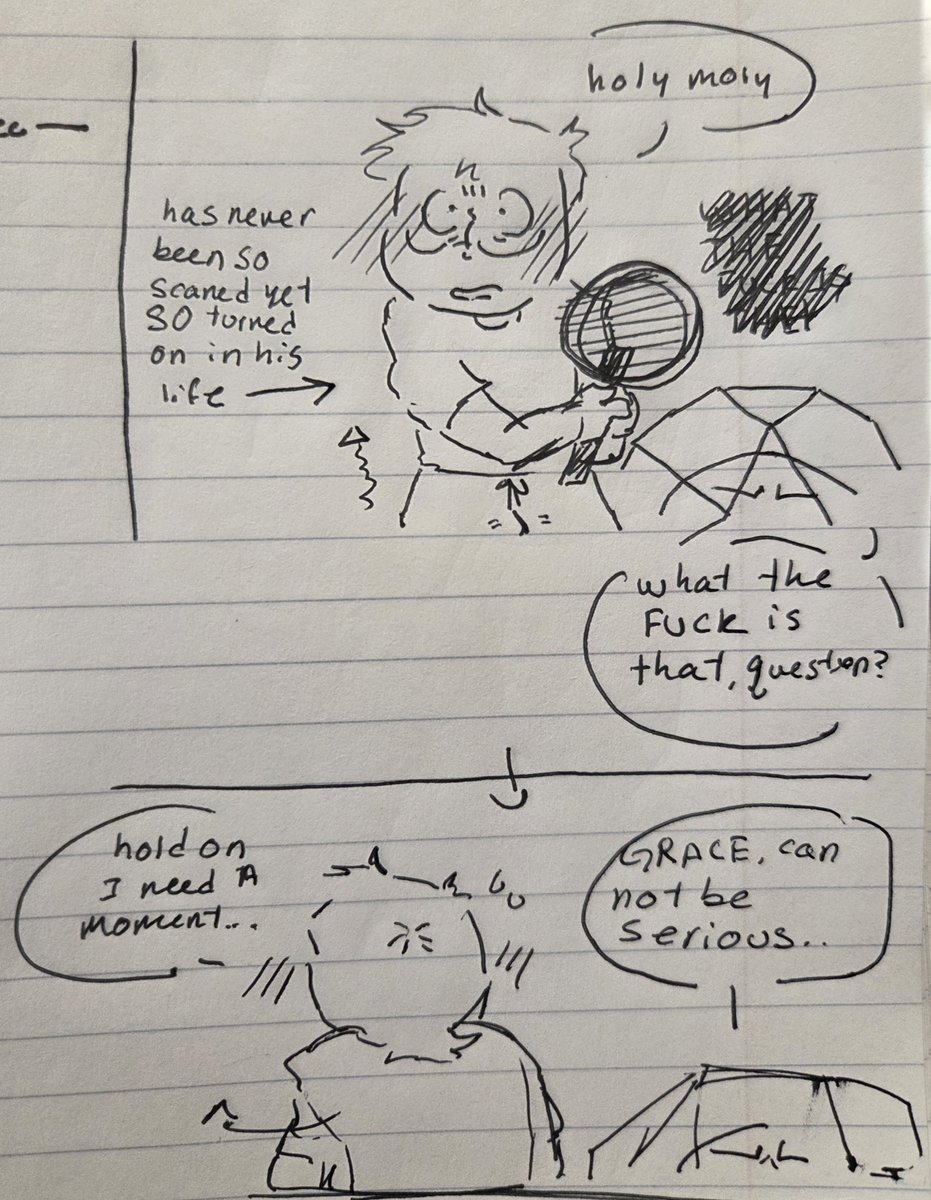 holy moly
has never
been so
scared yet
SO turned
on in his
life
what the
FUCK is
that, question?
hold on
I need A
moment...
GRACE, can
not be
serious..